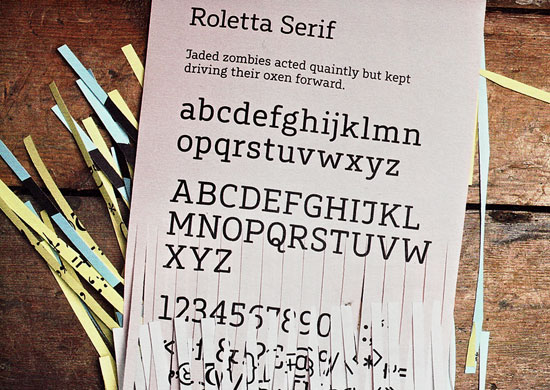 Roletta Serif
Jaded zombies acted quaintly but kept
driving their oxen forward.
abcdefghijklmn
opqrstuvwxyz
ABCDEFGHIJKL
MNOPQRSTUVW
XYZ
1234567890